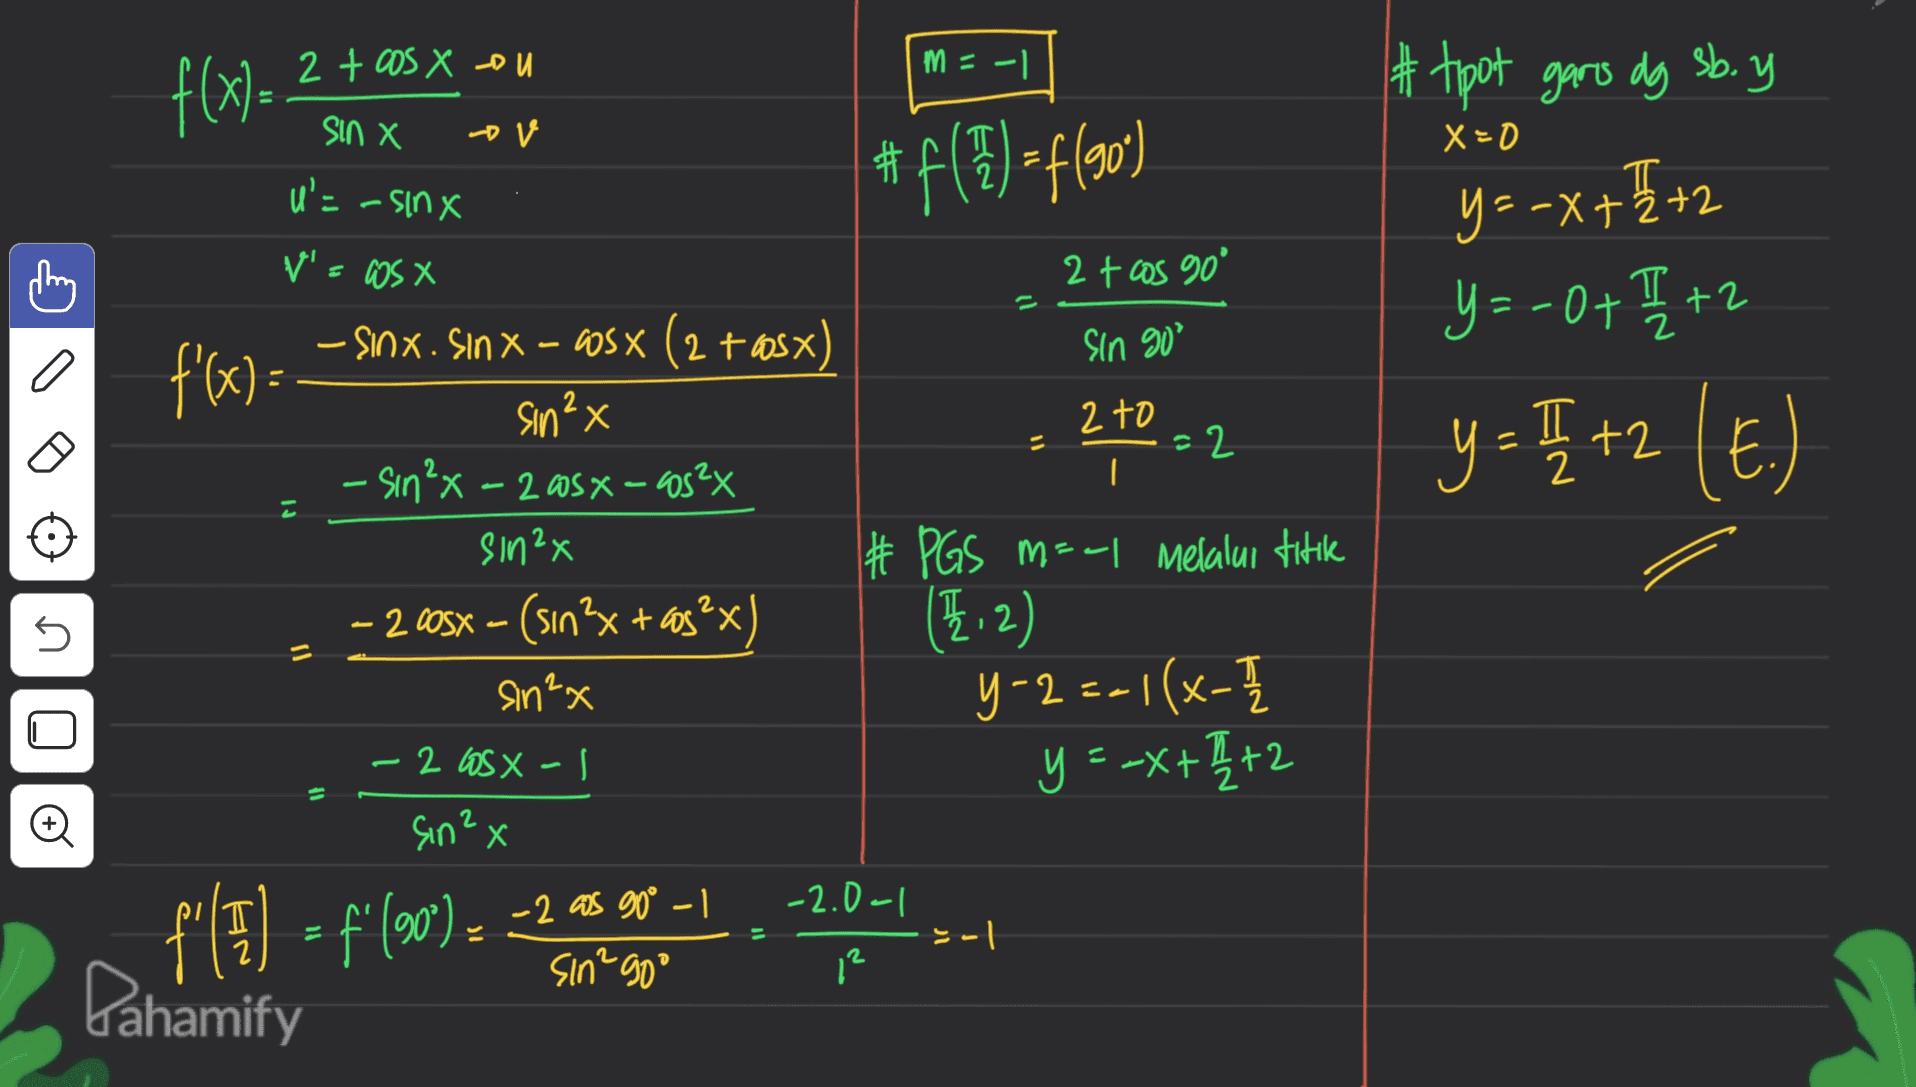 f(x) = 2 + cos x → u
sin x → v
u' = - sin x
v' = cos x
f'(x) = - sin x . sin x - cos x (2 + cos x)
sin² x
= - sin² x - 2 cos x - cos² x
sin² x
= - 2 cos x - (sin² x + cos² x)
sin² x
= - 2 cos x - 1
sin² x
f'(π/2) = f'(90°) = -2 cos 90° - 1 = -2.0 - 1 = -1
sin² 90° 1²
m = -1
# f(π/2) = f(90°)
= 2 + cos 90°
sin 90°
= 2 + 0 = 2
1
# PGS m = -1 melalui titik
(π/2, 2)
y - 2 = -1 (x - π/2
y = -x + π/2 + 2
# tipot garis dg sb. y
x = 0
y = -x + π/2 + 2
y = -0 + π/2 + 2
y = π/2 + 2 (E.)
Pahamify